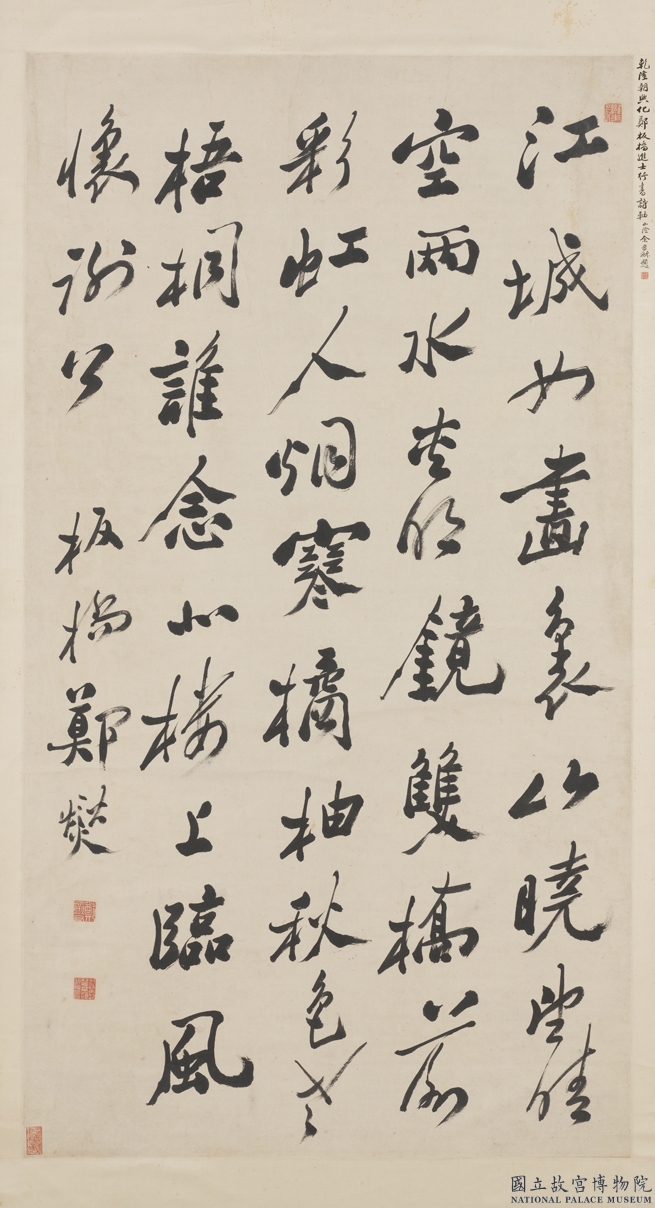 江城如畫裏山曉望晴
空兩水夾明鏡雙橋落
彩虹人烟寒橘柚秋色老
梧桐誰念北楼上臨風
懷謝公 板橋鄭燮
乾隆朝興化鄭板橋進士行書詩軸 山陰題
國立故宮博物院
NATIONAL PALACE MUSEUM